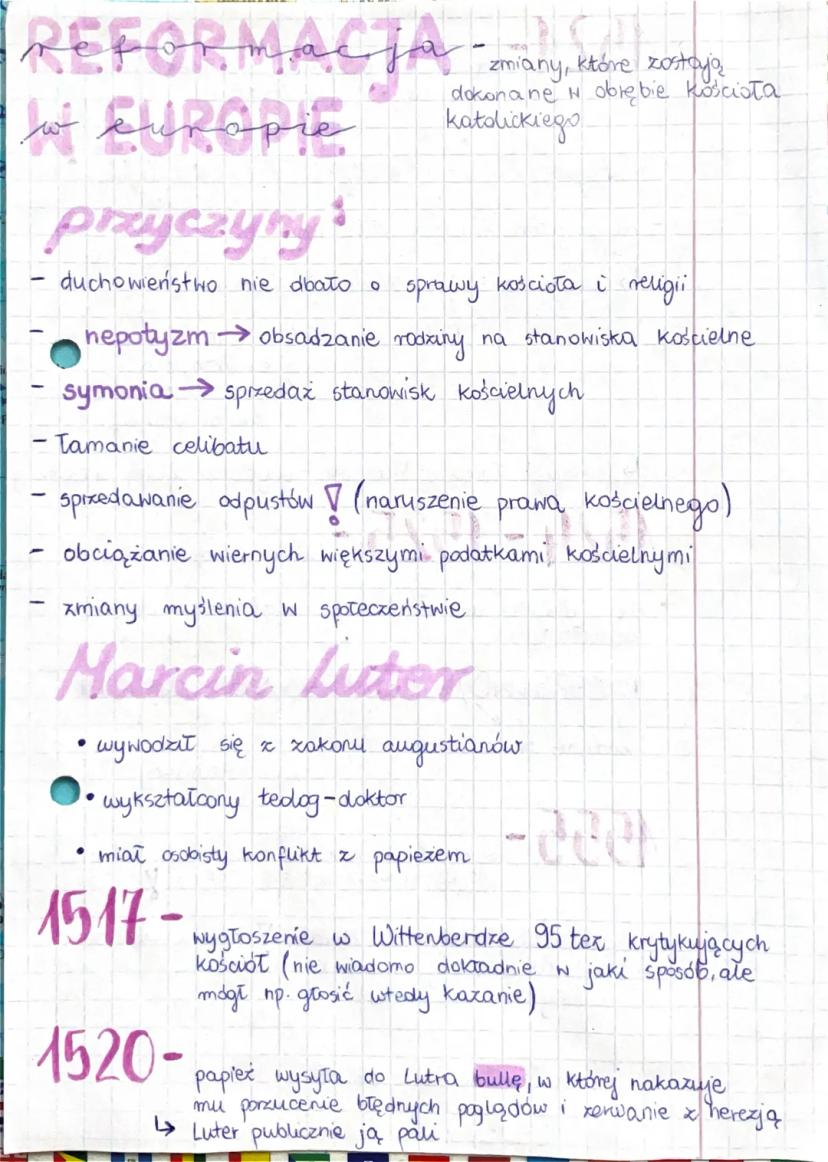 REFORMACJA
reformacja -
W EUROPIE
w europie
zmiany, które zostają
dokonane w obrębie kościoła
katolickiego
przyczyny:
- duchowieństwo nie dbało o sprawy kościoła i religii
- nepotyzm → obsadzanie rodziny na stanowiska kościelne
- symonia → sprzedaż stanowisk kościelnych
- łamanie celibatu
- sprzedawanie odpustów ! (naruszenie prawa kościelnego)
- obciążanie wiernych większymi podatkami kościelnymi
- zmiany myślenia w społeczeństwie
Marcin Luter
• wywodził się z zakonu augustianów
• wykształcony teolog-doktor
• miał osobisty konflikt z papieżem
1517 -
wygłoszenie w Wittenberdze 95 tez krytykujących
kościół (nie wiadomo dokładnie w jaki sposób, ale
mógł np. głosić wtedy kazanie)
1520 -
papież wysyła do Lutra bullę, w której nakazuje
mu porzucenie błędnych poglądów i zerwanie z herezją
↳ Luter publicznie ją pali